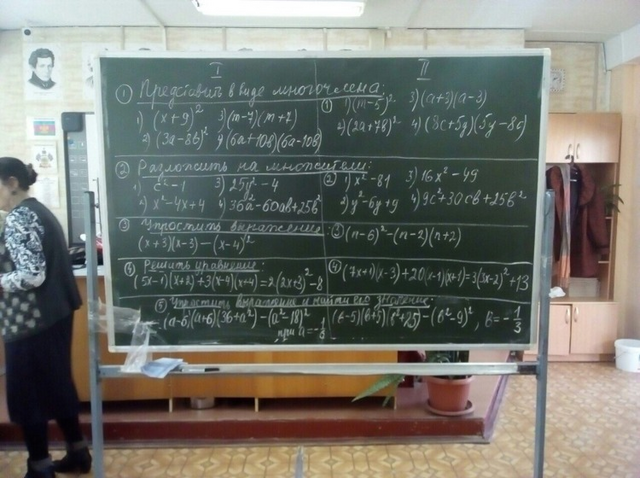 I II
① Представить в виде многочлена:
1) (x+9)² 3) (m-7)(m+7)
2) (3a-8b)² 4) (6a+10b)(6a-10b)
① 1) (m-5)² 3) (a+3)(a-3)
2) (2a+7b)² 4) (8c+5y)(5y-8c)
② Разложить на множители:
1) c²-1 3) 25y²-4
2) x²-4x+4 4) 36a²-60ab+25b²
② 1) x²-81 3) 16x²-49
2) y²-6y+9 4) 9c²+30cb+25b²
③ Упростить выражение:
(x+3)(x-3)-(x-4)²
③ (n-6)²-(n-2)(n+2)
④ Решить уравнение:
(5x-1)(x+2)+3(x-4)(x+4)=2(2x+3)²-8
④ (7x+1)(x-3)+20(x-1)(x+1)=3(3x-2)²+13
⑤ Упростить выражение и найти его значение
(a-6)(a+6)(36+a²)-(a²-18)²
при a=-
(b-5)(b+5)(b²+25)-(b²-9)², b=-1/3